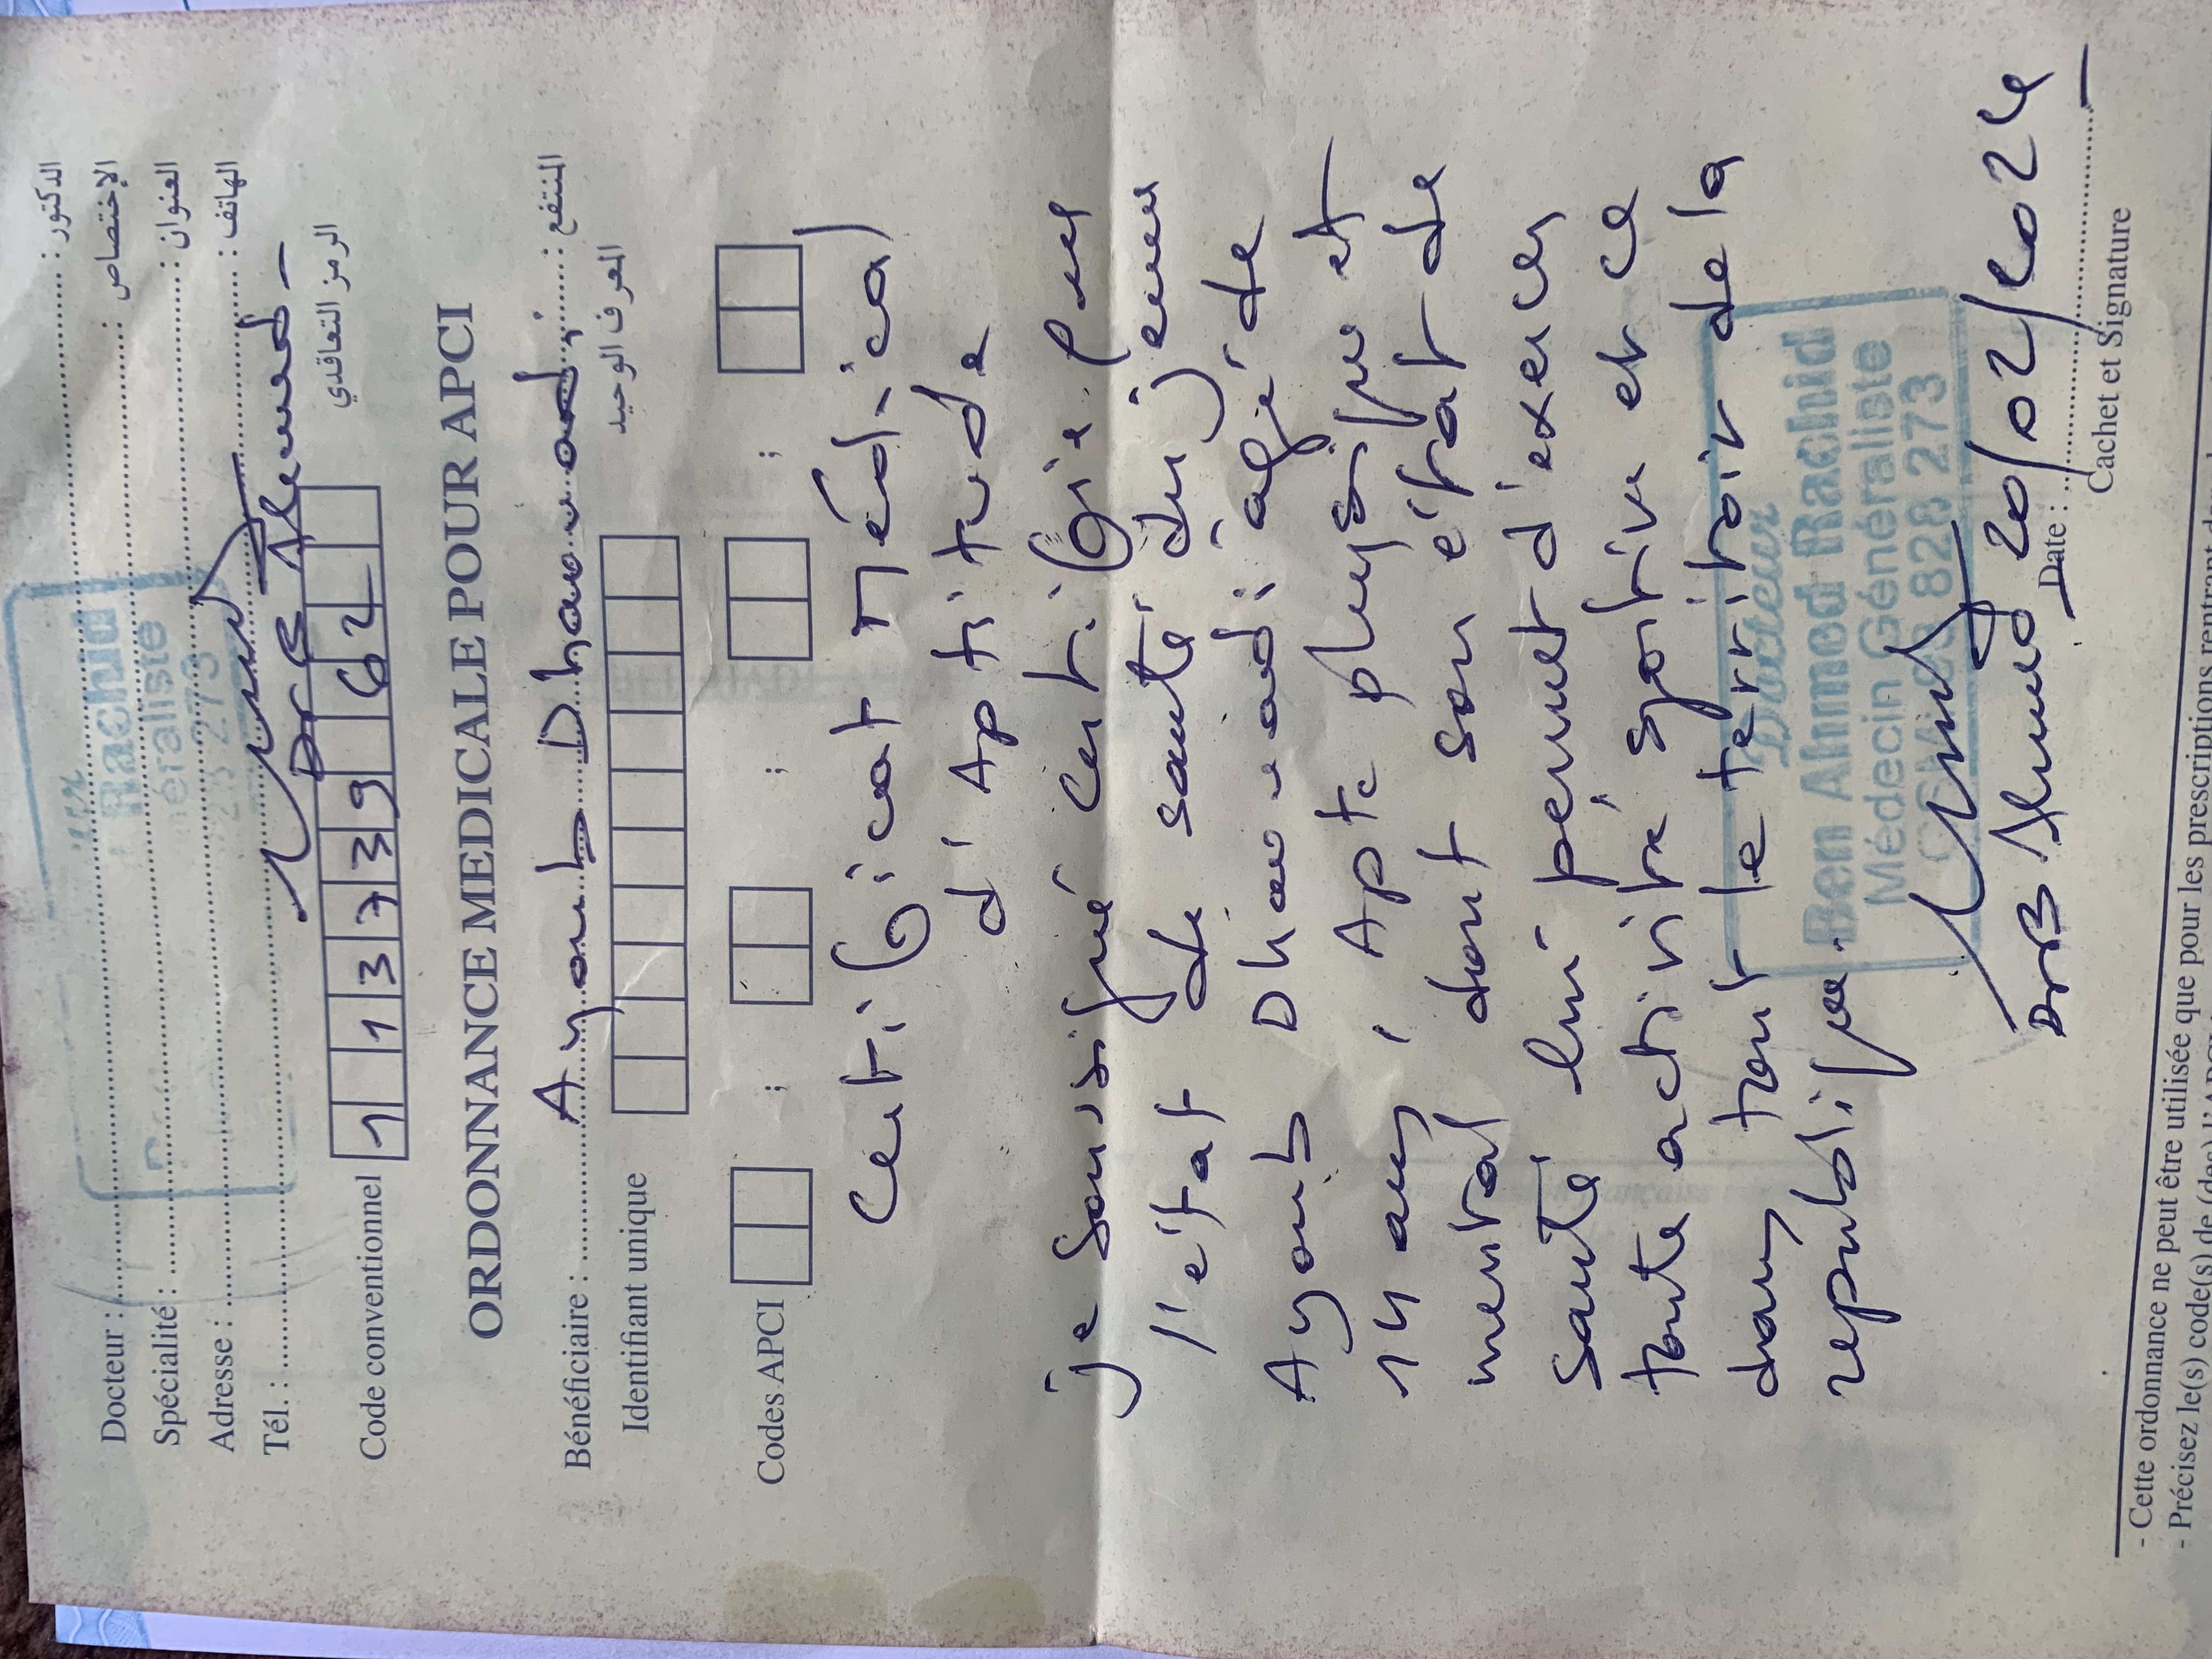 Docteur : : الدكتور
Spécialité : : الإختصاص
Adresse : : العنوان
Tél. : : الهاتف
Rachid
éraliste
273
Dr B Ahmed
Code conventionnel 1 1 3 7 3 9 6 2 الرمز التعاقدي
ORDONNANCE MEDICALE POUR APCI
Bénéficiaire : Ayoub Dhaouadi : المنتفع
Identifiant unique المعرف الوحيد
Codes APCI ; ; ;
Certificat Médical
d'Aptitude
je soussigné certifie que
l'état de santé du jeune
Ayoub Dhaouadi agé de
14 ans, Apte physique et
mental dont son état de
santé lui permet d'exercer
toute activité sportive et ce
dans tout le territoir de la
republique.
Docteur
Ben Ahmed Rachid
Médecin Généraliste
828 273
Dr B Ahmed 20/02/2024
Date :
Cachet et Signature
- Cette ordonnance ne peut être utilisée que pour les prescriptions rentrant
- Précisez le(s) code(s) de (des) l'APCI